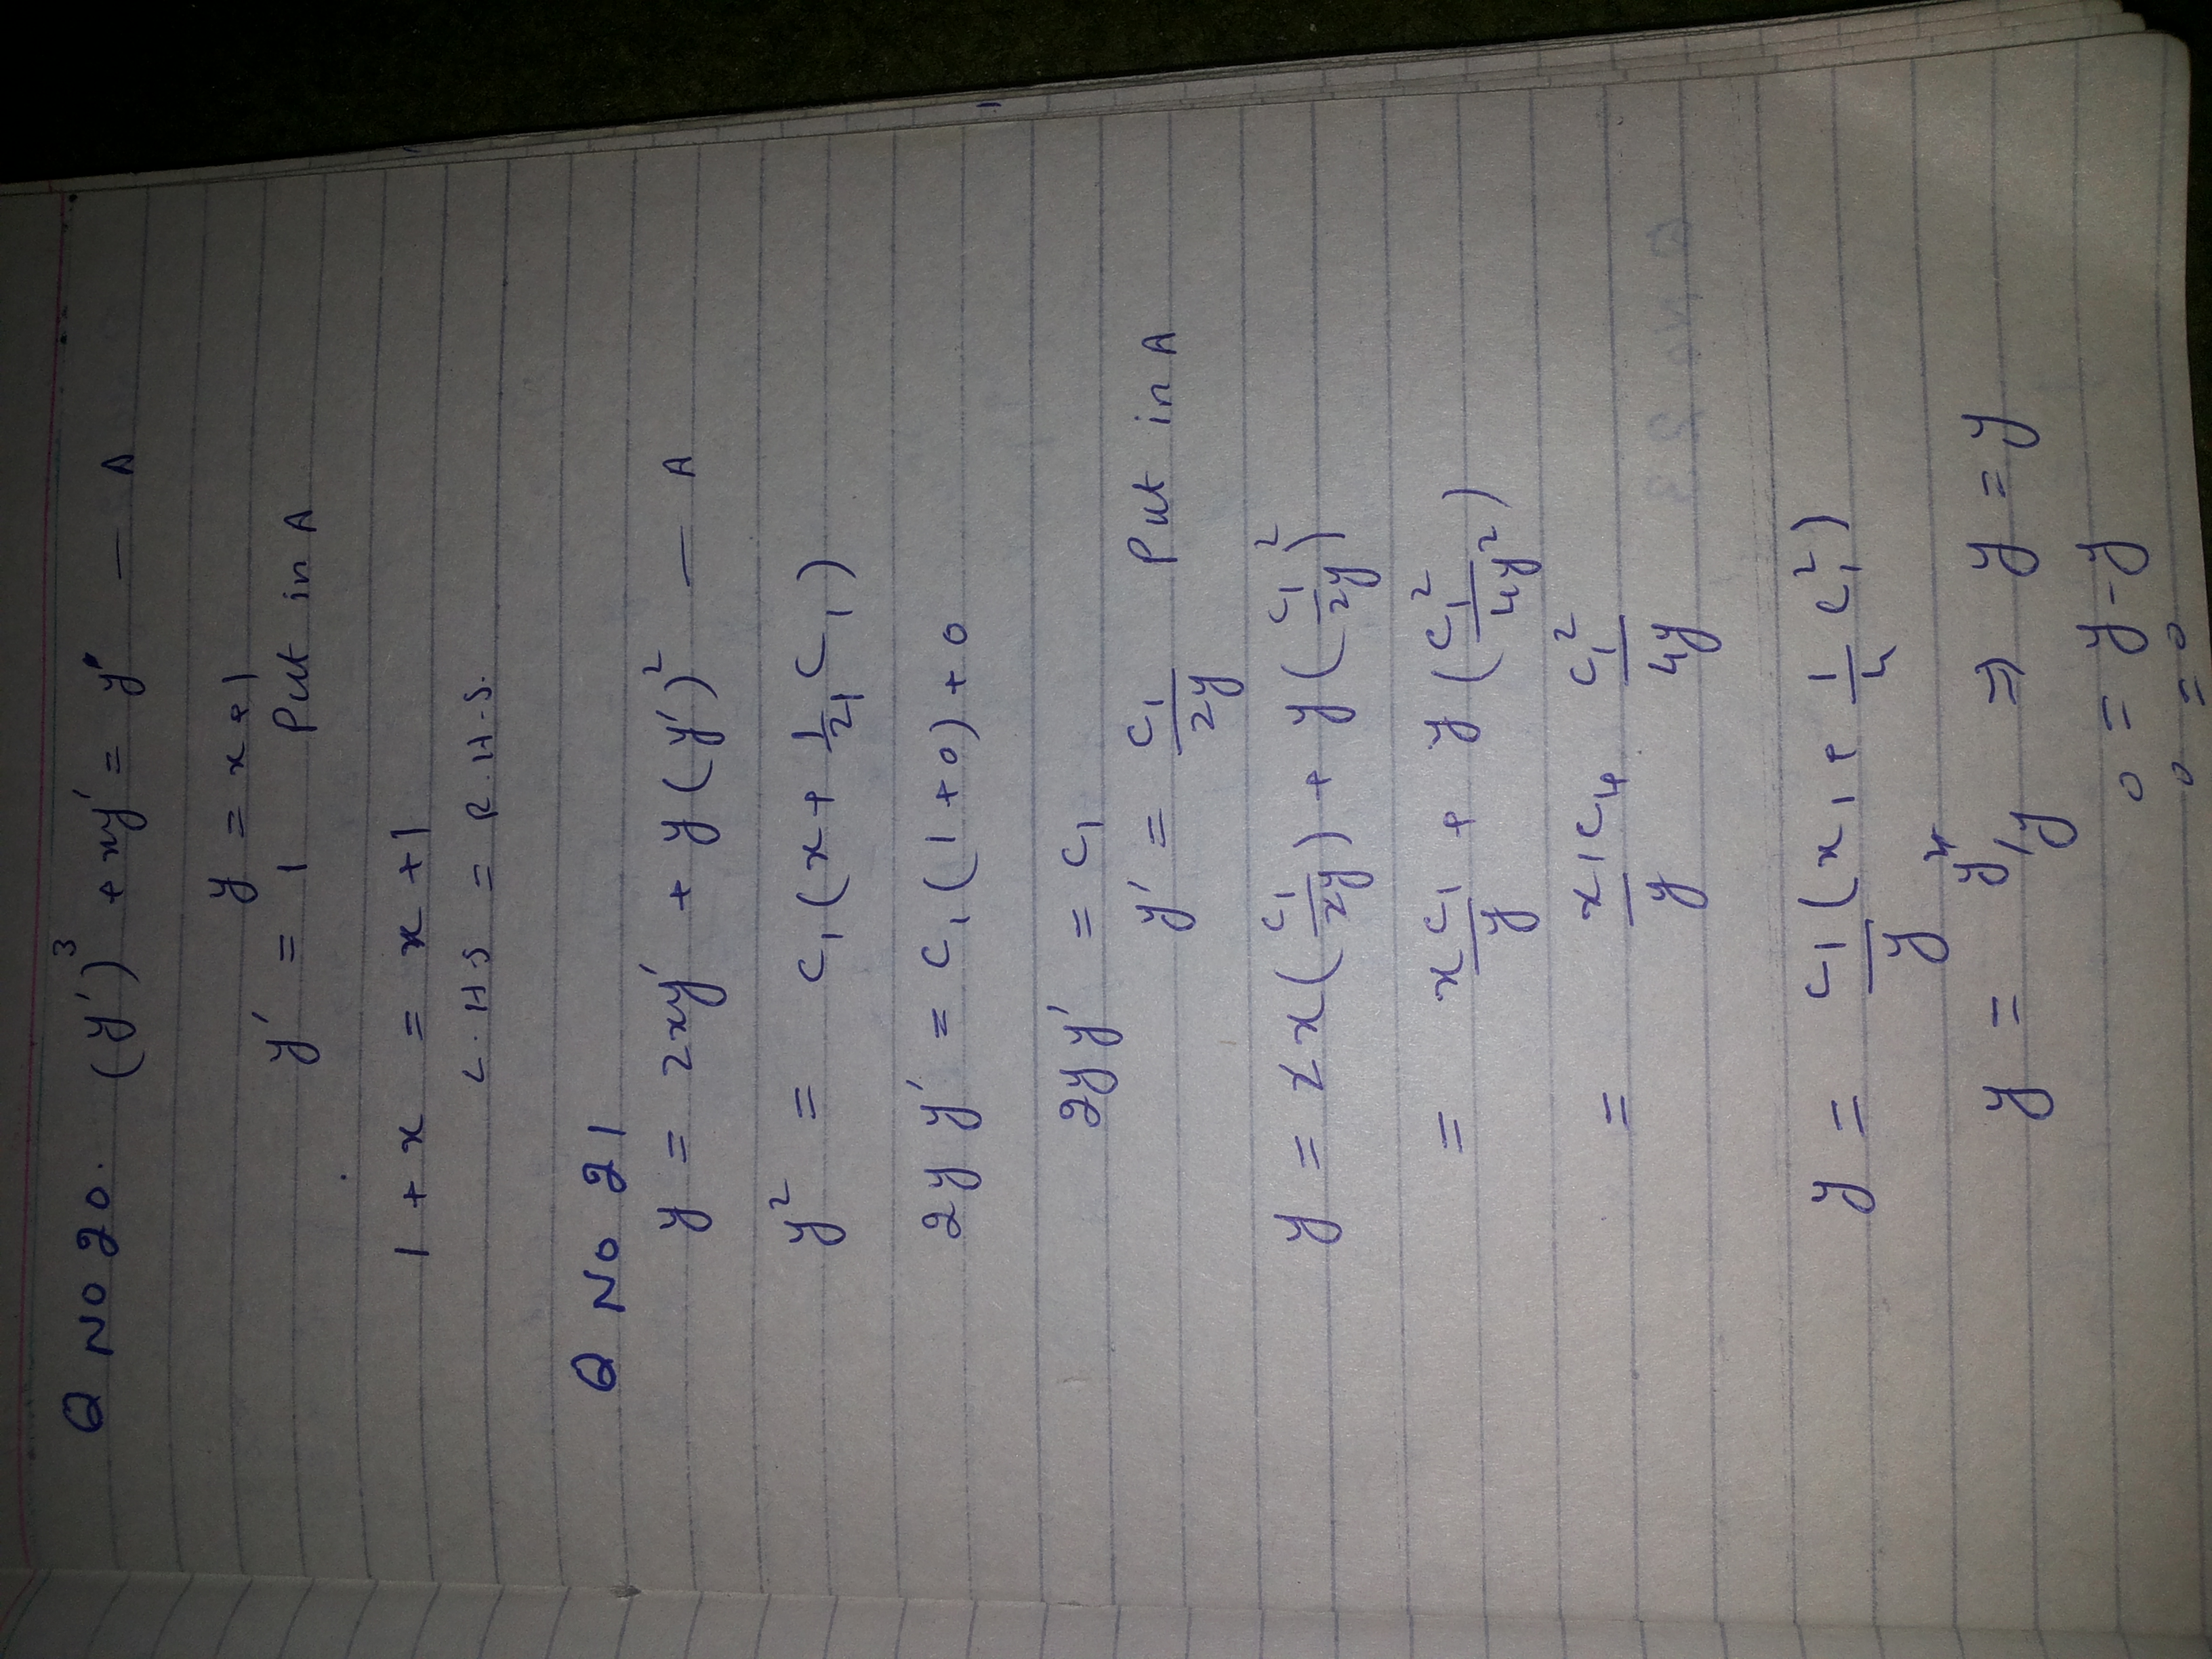 Q No 20. (y')³ + xy' = y — A
y = x + 1
y' = 1 Put in A
1 + x = x + 1
L.H.S = R.H.S.
Q No 21
y = 2xy' + y(y')² — A
y² = c₁(x + 1/4 c₁)
2y y' = c₁(1 + 0) + 0
2y y' = c₁
y' = c₁/2y Put in A
y = 2x(c₁/2y) + y(c₁/2y)²
= xc₁/y + y(c₁²/4y²)
= x₁c₁/y + c₁²/4y
y = c₁/y (x₁ + 1/4 c₁²)
y = y²/y ⇒ y = y
0 = y - y
0 = 0